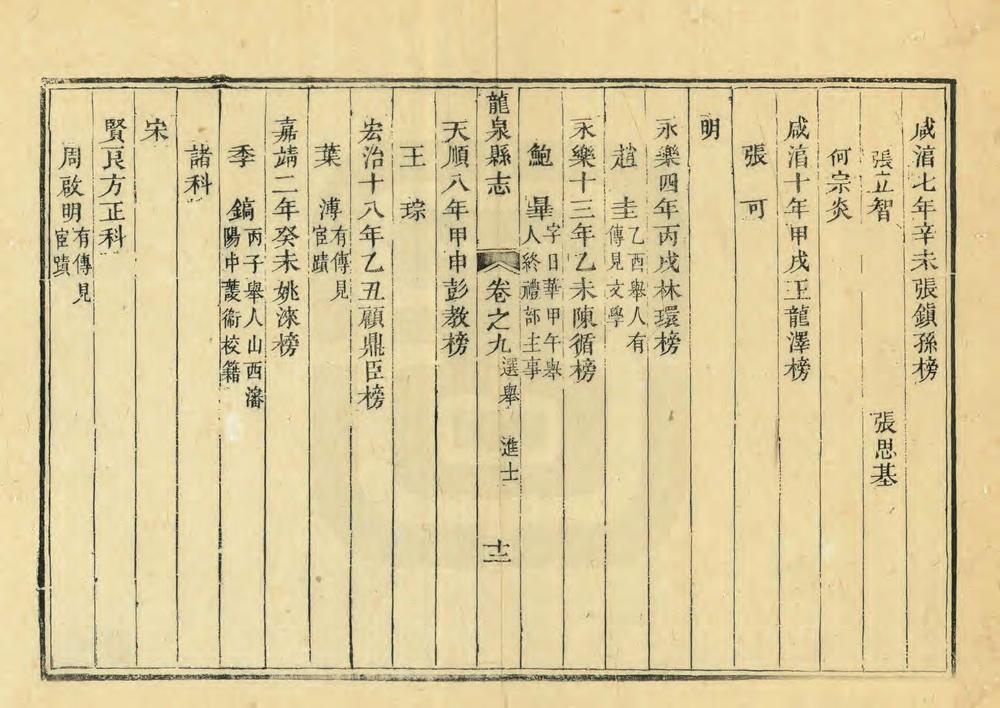 咸淯七年辛未張鎮孫榜
張立智　張思基
何宗炎
咸淯十年甲戌王龍澤榜
張可
明
永樂四年丙戌林環榜
趙圭乙酉舉人有
傳見文學
永樂十三年乙未陳循榜
鮑畢字日華甲午舉
人終禮部主事
龍泉縣志　卷之九　選舉　進士　十二
天順八年甲申彭教榜
王琮
宏治十八年乙丑顧鼎臣榜
葉溥有傳見
宦蹟
嘉靖二年癸未姚淶榜
季鎬丙子舉人山西瀋
陽中護衛校籍
諸科
宋
賢良方正科
周啟明有傳見
宦蹟